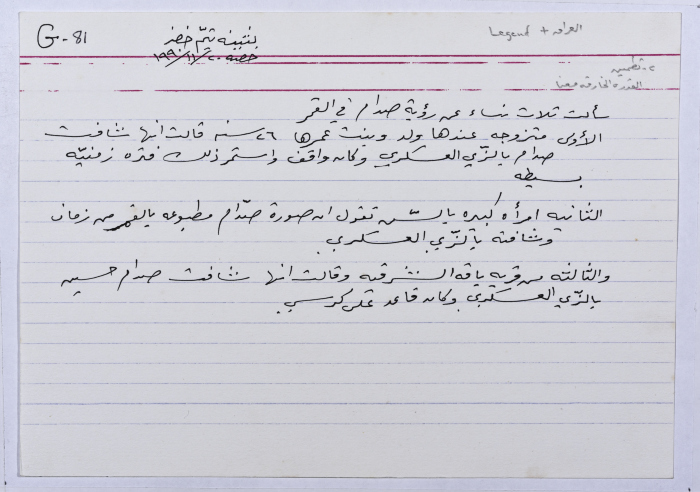 G-81
بثينه تيّم خضر
١٩٩٠/١١/٢٠
Legend + العراق
٢- تطمين
القدرة الخارقه معنا
سألت ثلاث نساء عن رؤية صدام في القمر
الأولى متزوجه عندها ولد وبنت عمرها ٢٦ سنه قالت انها شافت
صدام بالزّي العسكري وكان واقف واستمر ذلك فتره زمنيّه
بسيطه
الثانيه امرأه كبيره بالسّن تقول ان صورة صدّام مطبوعه بالقمر من زمان
وشافته بالزّي العسكري.
والثالثه من قريه باقه الشرقيه وقالت انها شافت صدام حسين
بالزّي العسكري وكان قاعد على كرسي.